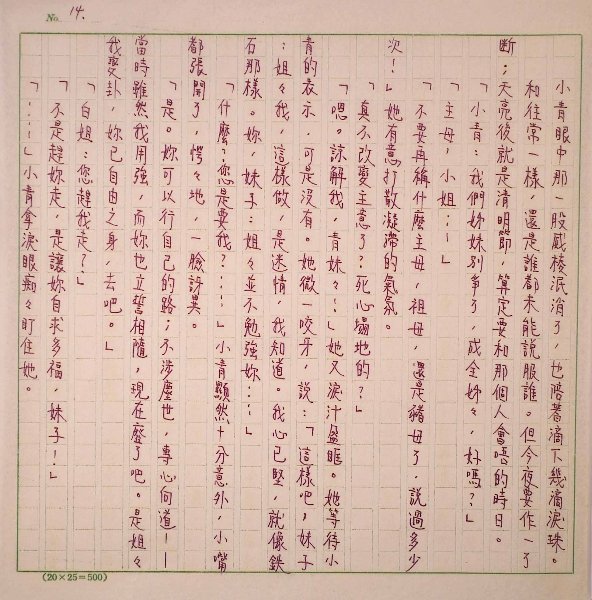 No. 14.
小青眼中那一股威棱泯消了，也陪著滴下幾滴淚珠。
和往常一樣，還是誰都未能說服誰。但今夜要作一了
斷；天亮後就是清明節，算定要和那個人會唔的時日。
「小青：我們姊妹別爭了，成全姊々，好嗎？」
「主母，小姐…」
「不要再稱什麼主母，祖母，還是豬母了，說過多少
次！」她有意打散凝滯的氣氛。
「真不改變主意了？死心塌地的？」
「嗯。諒解我，青妹々！」她又淚汁盈眶。她等待小
青的表示，可是沒有。她微一咬牙，說：「這樣吧，妹子
：姐々我，這樣做，是迷情，我知道。我心已堅，就像鉄
石那樣。妳，妹子：姐々並不勉強妳……」
「什麼？您是要我？……」小青顯然十分意外，小嘴
都張開了，愕々地，一臉訝異。
「是。妳可以行自己的路；不涉塵世，專心向道——
當時雖然我用強，而妳也立誓相隨，現在廢了吧。是姐々
我變卦，妳已自由之身，去吧。」
「白姐：您趕我走？」
「不是趕妳走，是讓妳自求多福，妹子！」
「……」小青拿淚眼痴々盯住她。
(20×25=500)